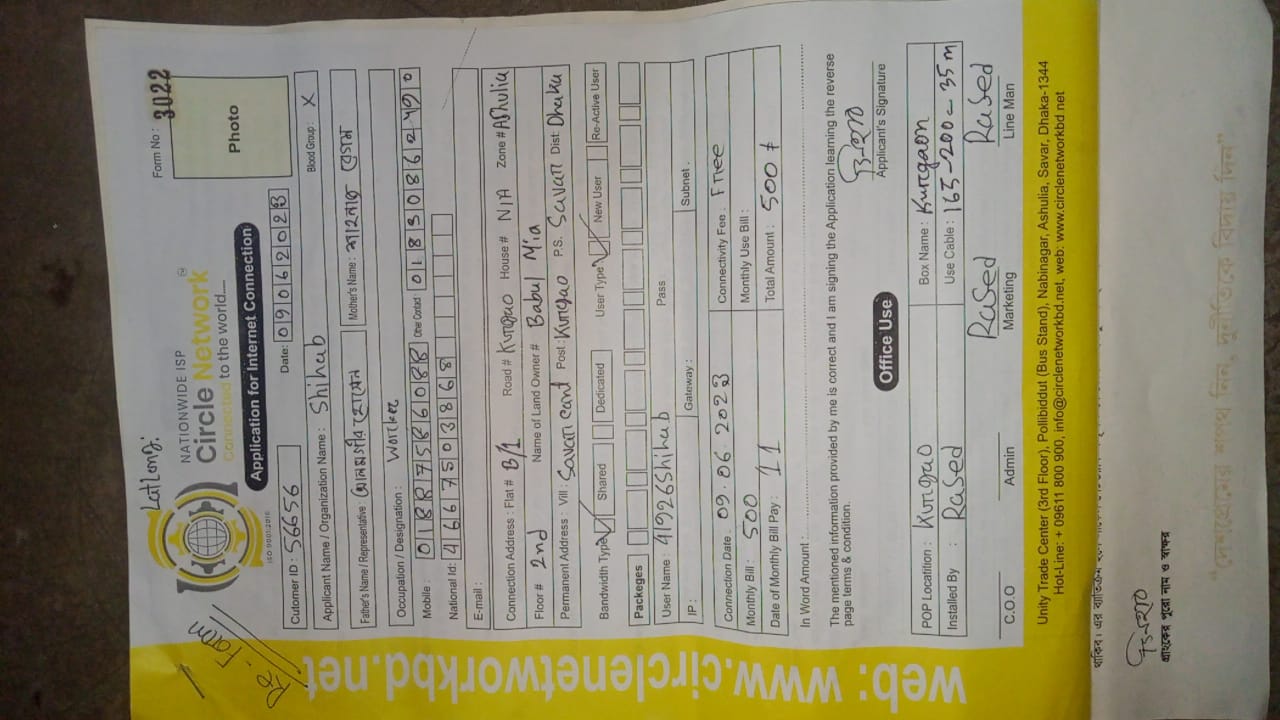 Latlong:
Re-Form
NATIONWIDE ISP
Circle Network TM
Connected to the world....
ISO 9001:2015
Form No : 3022
Photo
Application for Internet Connection
Cutomer ID : 56656 Date: 09062023
Applicant Name / Organization Name : Shihub Blood Group : X
Father's Name / Representative : আলমগীর হোসেন Mother's Name : শাহনাজ বেগম
Occupation / Designation : Worker
Mobile : 01887586088 Other Contact : 01830862490
National Id: 4667503868
E-mail :
Connection Address : Flat # B/1 Road # Kurgao House # N/A Zone # Ashulia
Floor # 2nd Name of Land Owner # Babul Mia
Permanent Address : Vill : Savar cant Post : Kurgao P.S. Savar Dist: Dhaka
Bandwidth Type Shared Dedicated User Type New User Re-Active User
Packeges
User Name : 4926Shihub Pass
IP : Gateway : Subnet :
Connection Date 09.06.2023 Connectivity Fee : Free
Monthly Bill : 500 Monthly Use Bill :
Date of Monthly Bill Pay : 11 Total Amount : 500 ৳
In Word Amount
The mentioned information provided by me is correct and I am signing the Application learning the reverse
page terms & condition.
Applicant's Signature
Office Use
POP Locatition : Kurgao Box Name : Kurgaon
Installed By : RaSed Use Cable : 165-200 = 35 m
RaSed RaSed
C.O.O Admin Marketing Line Man
Unity Trade Center (3rd Floor), Pollibiddut (Bus Stand), Nabinagar, Ashulia, Savar, Dhaka-1344
Hot-Line: + 09611 800 900, info@circlenetworkbd.net, web: www.circlenetworkbd.net
web: www.circlenetworkbd.net
গ্রাহকের পুরো নাম ও স্বাক্ষর
"দেশপ্রেমের শপথ নিন, দুর্নীতিকে বিদায় দিন"